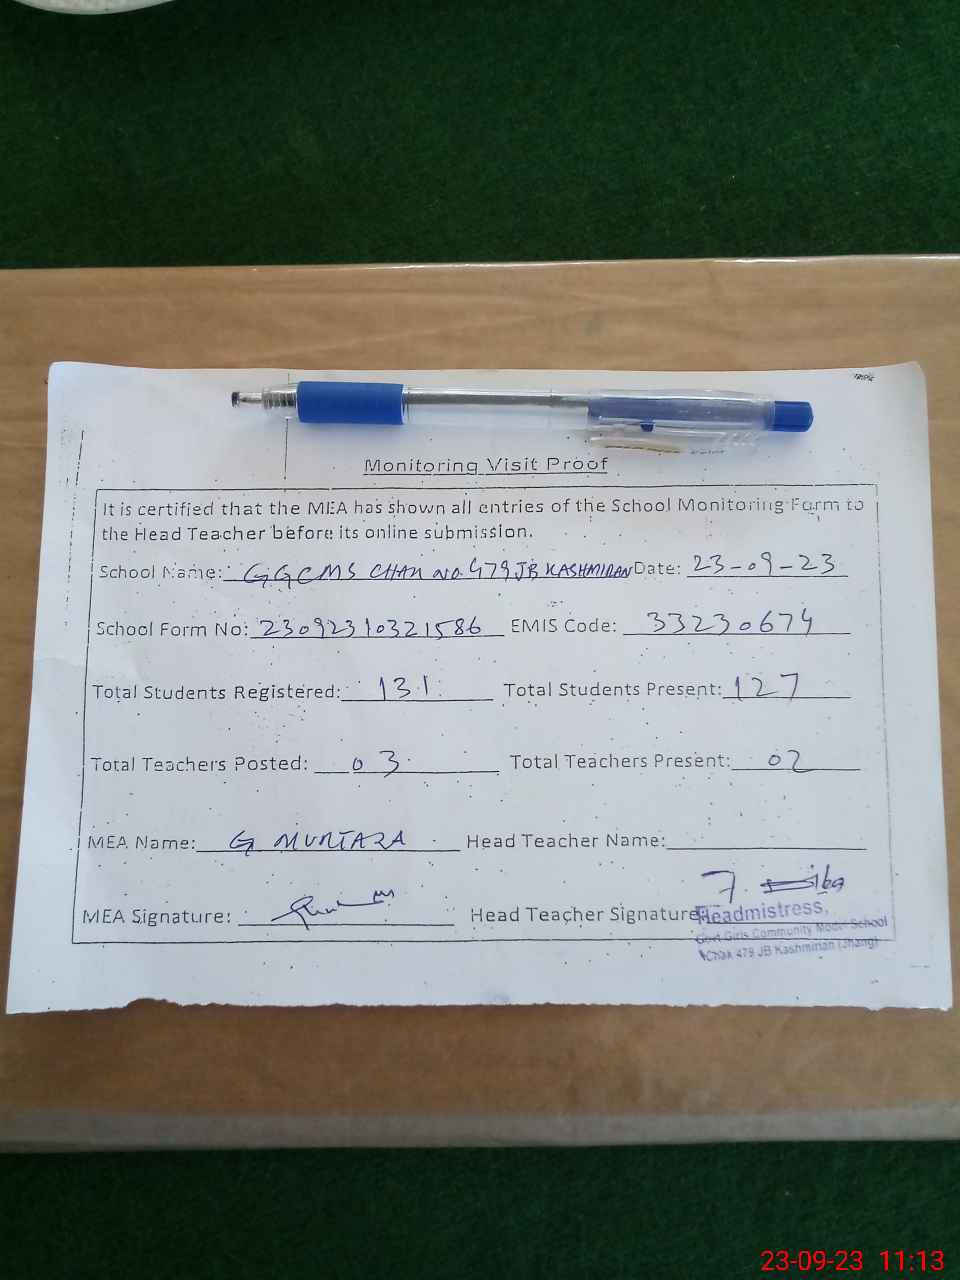 Monitoring Visit Proof
It is certified that the MEA has shown all entries of the School Monitoring Form to
the Head Teacher before its online submission.
School Name: GGCMS CHAK NO. 479 JB KASHMIRAN Date: 23-09-23
School Form No: 23092310321586 EMIS Code: 33230674
Total Students Registered: 131 Total Students Present: 127
Total Teachers Posted: 03 Total Teachers Present: 02
MEA Name: G MURTAZA Head Teacher Name:
MEA Signature: Head Teacher Signature
Headmistress,
Govt Girls Community Model School
Chak 479 JB Kashmirian (Jhang)
23-09-23 11:13